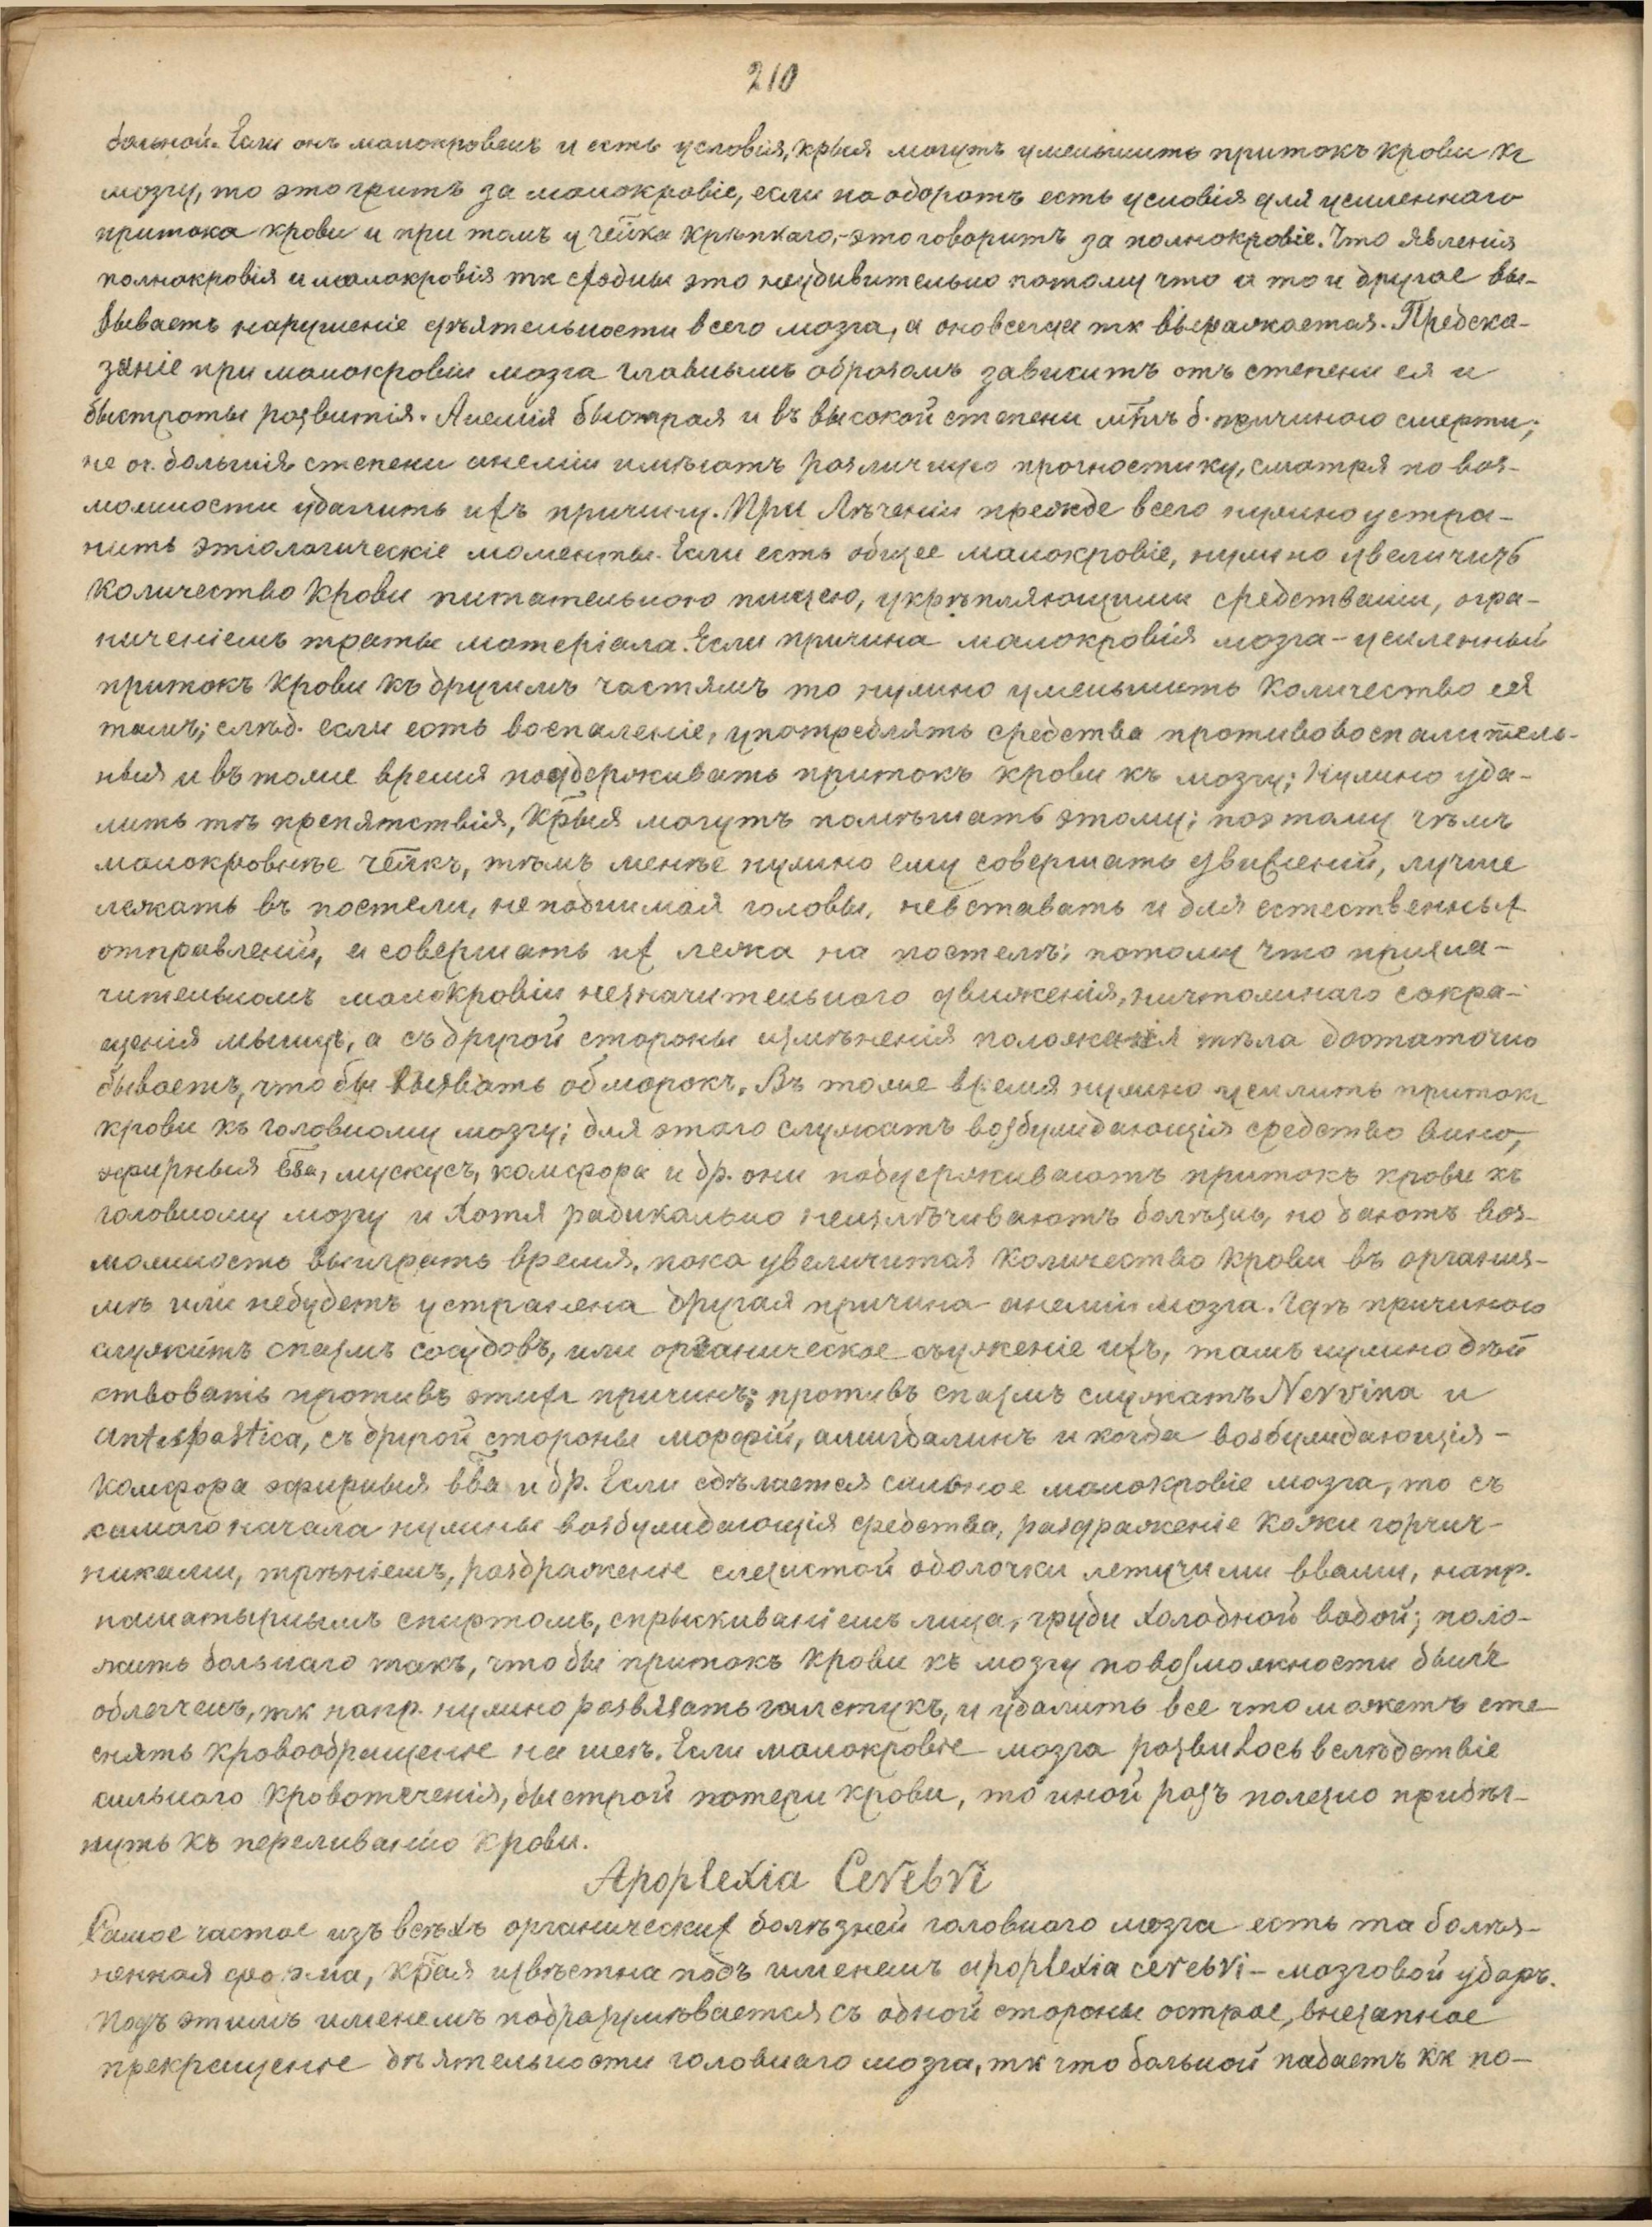 210
больной. Если онъ малокровенъ и есть условія, крыя могутъ уменьшить притокъ крови къ
мозгу, то это гритъ за малокровіе, если на оборотъ есть условія для усиленнаго
притока крови и при томъ у чейка крѣпкаго,-это говоритъ за полнокровіе. Что явленія
полнокровія и малокровія тк сходны это неудивительно потому что и то и другое вы-
зываетъ нарушеніе дѣятельности всего мозга, а оно всегда тк выражается. Предска-
заніе при малокровіи мозга главнымъ образомъ зависитъ отъ степени ея и
быстроты развитія. Анемія быстрая и въ высокой степени мтъ б. причиною смерти;
не оч. большія степени анеміи имѣютъ различную прогностику, смотря по воз-
можности удалить ихъ причину. При лѣченіи прежде всего нужно устра-
нить этіологическіе моменты. Если есть общее малокровіе, нужно увеличить
количество крови питательною пищею, укрѣпляющими средствами, огра-
ниченіемъ траты матеріала. Если причина малокровія мозга - усиленный
притокъ крови къ другимъ частямъ то нужно уменьшить количество ея
тамъ; слѣд. если есть воспаленіе, употреблять средства противовоспалитель-
ныя и въ тоже время поддерживать притокъ крови къ мозгу; Нужно уда-
лить тѣ препятствія, крыя могутъ помѣшать этому; поэтому чѣмъ
малокровнѣе чейкъ, тѣмъ менѣе нужно ему совершать движеній, лучше
лежать въ постели, не поднимая головы, не вставать и для естественных
отправленій, а совершать их лежа на постелѣ; потому что при зна-
чительномъ малокровіи незначительнаго движенія, ничтожнаго сокра-
щенія мышцъ, а съ другой стороны измѣненія положенія тѣла достаточно
бываетъ, что бы вызвать обморокъ. Въ тоже время нужно усилить притокъ
крови къ головному мозгу; для этого служатъ возбуждающія средства вино,
эфирныя вва, мускусъ, камфора и др. они поддерживаютъ притокъ крови къ
головному мозгу и хотя радикально неизлѣчиваютъ болѣзнь, но даютъ воз-
можность выиграть время, пока увеличится количество крови въ организ-
мѣ или небудетъ устранена другая причина анеміи мозга. Гдѣ причиною
служитъ спазмъ сосудовъ, или органическое съуженіе ихъ, тамъ нужно дѣй
ствовать противъ этихъ причинъ; противъ спазмъ служатъ Nervina и
antispastica, съ другой стороны морфій, амигдалинъ и когда возбуждающія -
камфора эфирныя вва и др. Если сдѣлается сильное малокровіе мозга, то съ
самого начала нужны возбуждающія средства, раздраженіе кожи горчич-
никами, треніемъ, раздраженіе слизистой оболочки летучими ввами, напр.
нашатырнымъ спиртомъ, спрыскиваніемъ лица, груди холодной водой; поло-
жить больнаго такъ, что бы притокъ крови къ мозгу по возможности былъ
облегченъ, тк напр. нужно развязать галстукъ, и удалить все что можетъ сте
снять кровообращеніе на шеѣ. Если малокровіе мозга развилось вслѣдствіе
сильнаго кровотеченія, быстрой потери крови, то иной разъ полезно прибѣг-
нуть къ переливанію крови.
Apoplexia Cerebri
Самое частое изъ всѣхъ органических болѣзней головнаго мозга есть та болѣз-
ненная форма, края извѣстна подъ именемъ apoplexia cerebri - мозговой ударъ.
Подъ этимъ именемъ подразумѣвается съ одной стороны острое, внезапное
прекращеніе дѣятельности головнаго мозга, тк что больной падаетъ кк по-